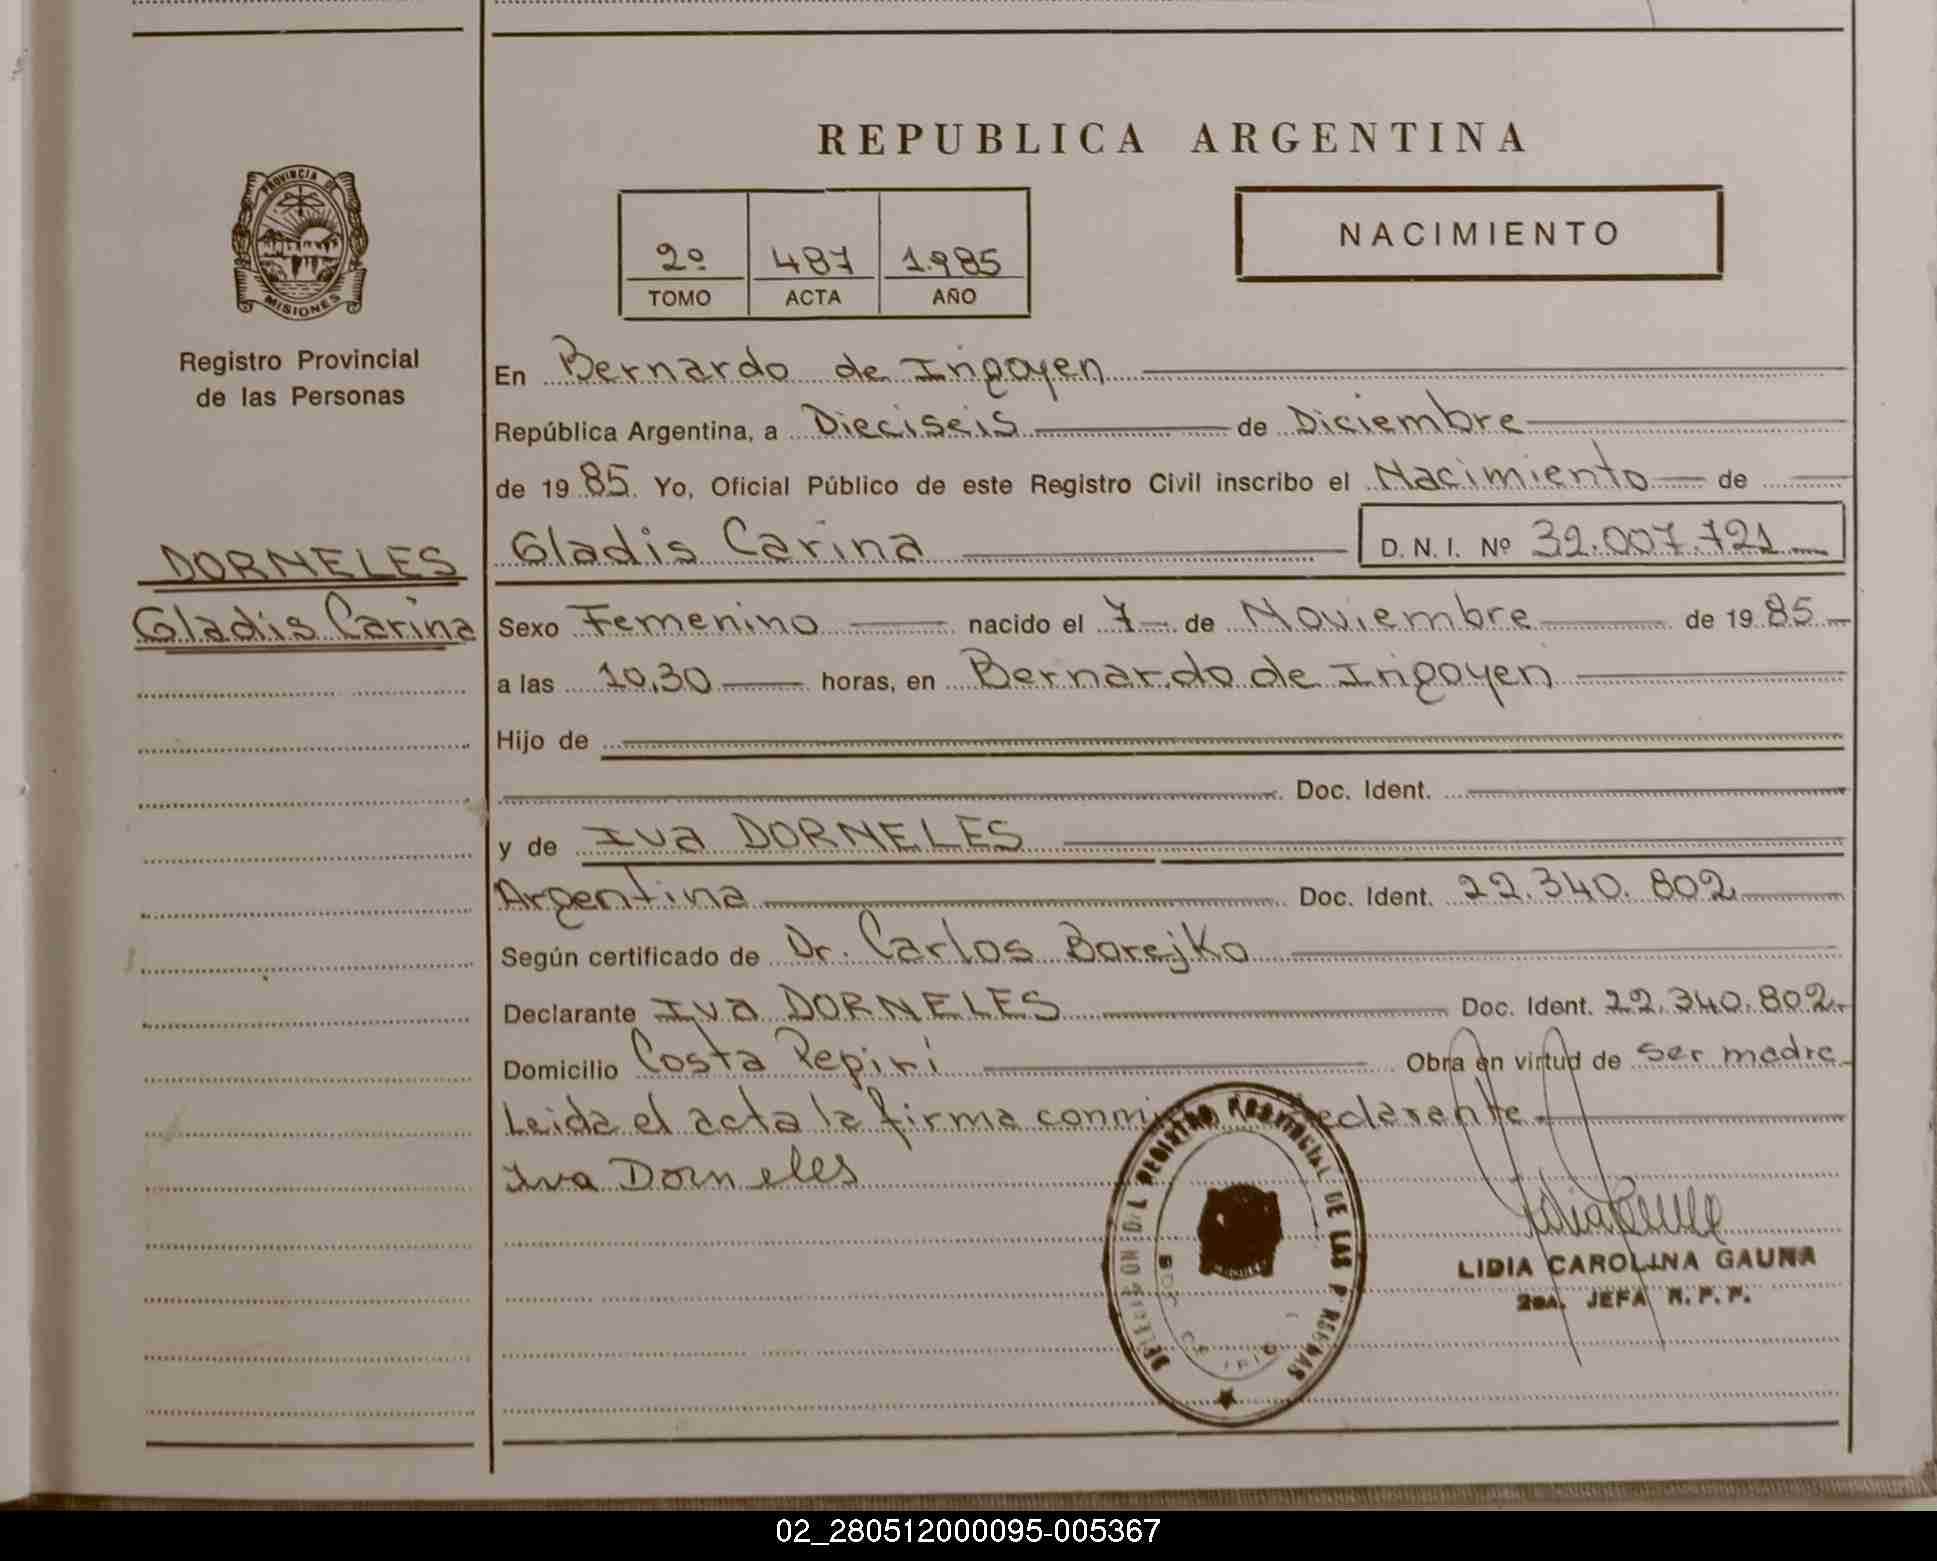 REPUBLICA ARGENTINA
PROVINCIA DE
MISIONES
Registro Provincial
de las Personas
2º 487 1.985
TOMO ACTA AÑO
NACIMIENTO
En Bernardo de Irigoyen
República Argentina, a Dieciseis de Diciembre
de 19 85. Yo, Oficial Público de este Registro Civil inscribo el Nacimiento de
DORNELES
Gladis Carina
Gladis Carina D. N. I. Nº 32.007.721
Sexo Femenino nacido el 7 de Noviembre de 19 85
a las 10,30 horas, en Bernardo de Irigoyen
Hijo de
Doc. Ident.
y de Iva DORNELES
Argentina Doc. Ident. 22.340.802
Según certificado de Dr. Carlos Borejko
Declarante Iva DORNELES Doc. Ident. 22.340.802
Domicilio Costa Pepirí Obra en virtud de ser madre
Leida el acta la firma declarante
Iva Dorneles
REGISTRO PROVINCIAL DE LAS
LIDIA CAROLINA GAUNA
2DA. JEFA R. P. P.
02_280512000095-005367